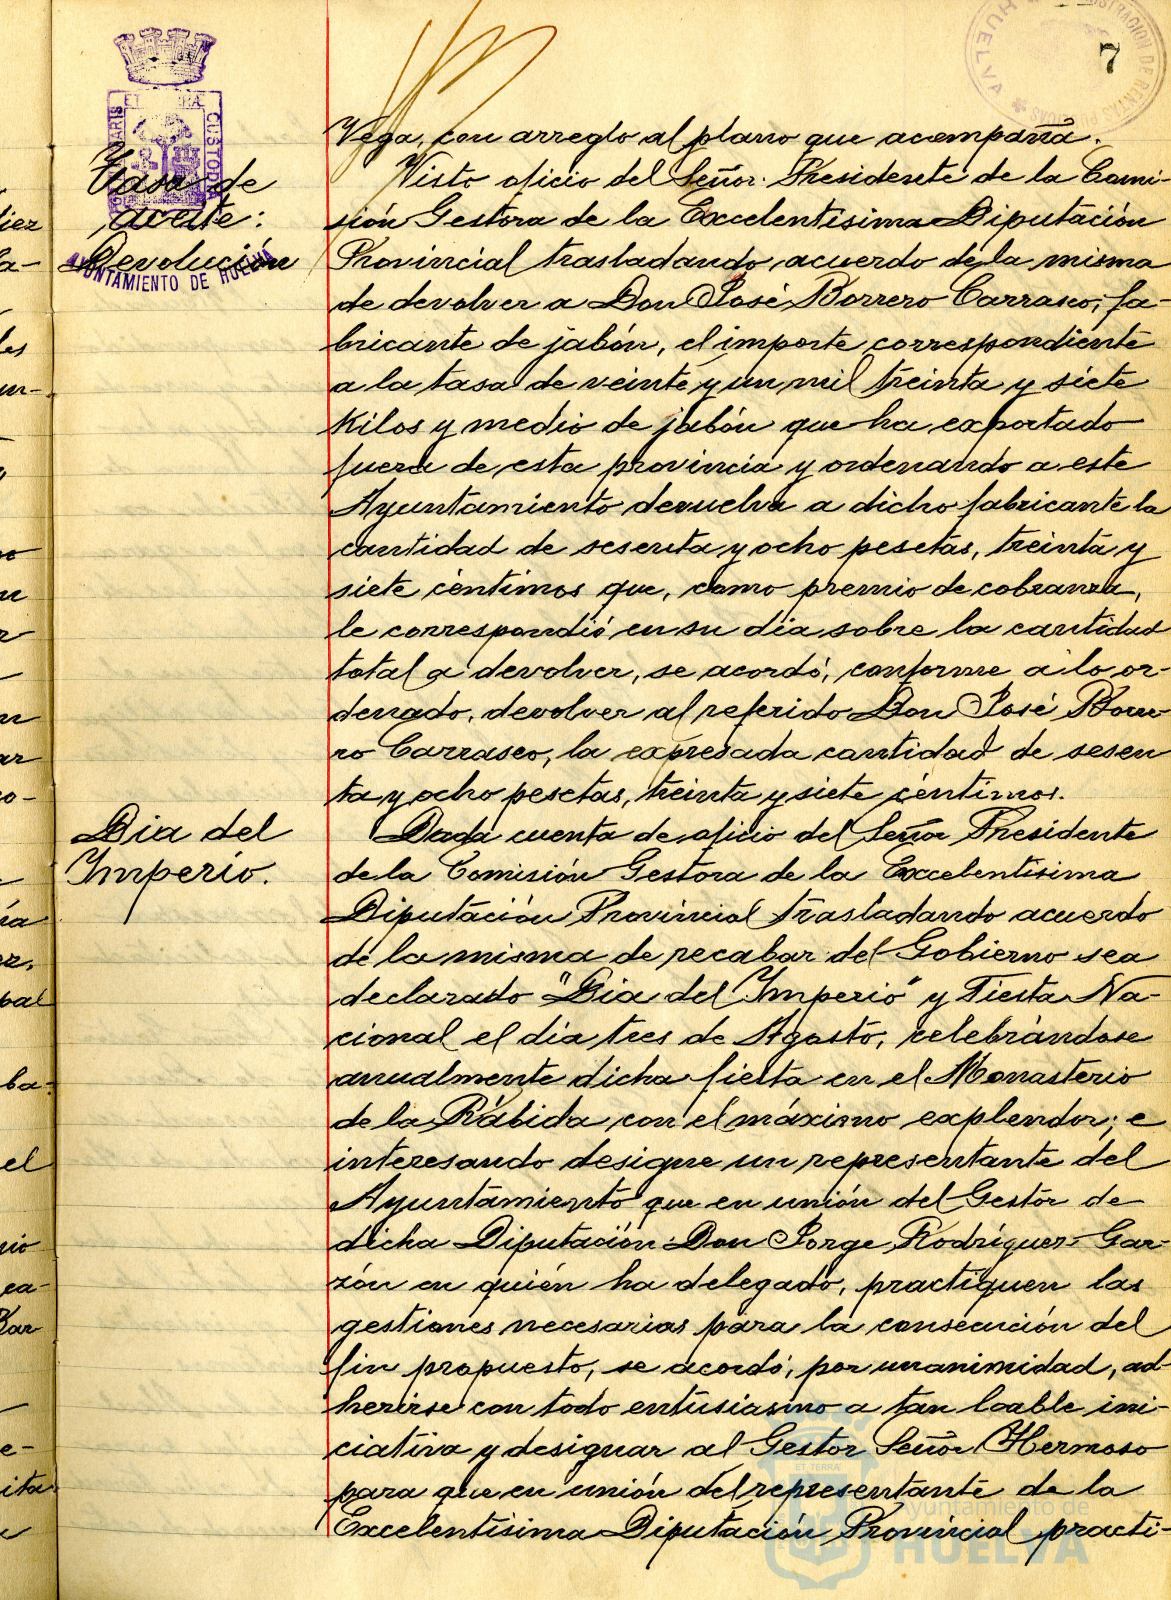 7
Vega, con arreglo al plano que acompaña.
Tasa de
aceite:
Devolución
AYUNTAMIENTO DE HUELVA
Visto oficio del Señor Presidente de la Comi-
sión Gestora de la Excelentísima Diputación
Provincial trasladando acuerdo de la misma
de devolver a Don José Borrero Carrasco, fa-
bricante de jabón, el importe correspondiente
a la tasa de veinte y un mil treinta y siete
kilos y medio de jabón que ha exportado
fuera de esta provincia y ordenando a este
Ayuntamiento devuelva a dicho fabricante la
cantidad de sesenta y ocho pesetas, treinta y
siete céntimos que, como premio de cobranza,
le correspondió en su dia sobre la cantidad
total a devolver, se acordó, conforme a lo or-
denado, devolver al referido Don José Borre
ro Carrasco, la expresada cantidad de sesen
ta y ocho pesetas, treinta y siete céntimos.
Dia del
Imperio.
Dada cuenta de oficio del Señor Presidente
de la Comisión Gestora de la Excelentísima
Diputación Provincial trasladando acuerdo
de la misma de recabar del Gobierno sea
declarado "Dia del Imperio" y Fiesta Na-
cional el día tres de Agosto, celebrándose
anualmente dicha fiesta en el Monasterio
de la Rábida con el máximo explendor; e
interesando designe un representante del
Ayuntamiento que en unión del Gestor de
dicha Diputación Don Jorge Rodríguez Gar-
zón en quién ha delegado, practiquen las
gestiones necesarias para la consecución del
fin propuesto, se acordó, por unanimidad, ad-
herirse con todo entusiasmo a tan loable ini-
ciativa y designar al Gestor Señor Hermoso
para que en unión del representante de la
Excelentísima Diputación Provincial practi-
Ayuntamiento de
HUELVA